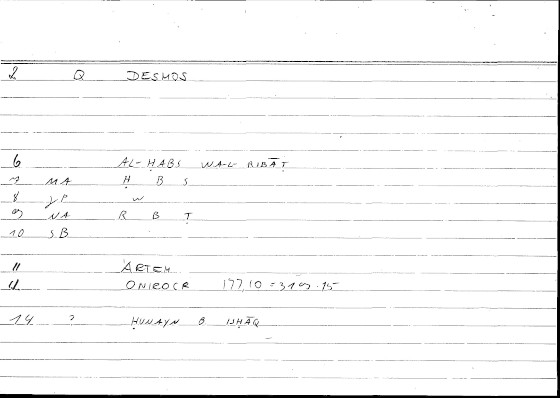 2 Q DESMOS
6 AL-ḤABS WA-L RIBĀṬ
7 MA Ḥ B S
8 JP W
9 NA R B Ṭ
10 SB
11 ARTEM
ONIROCR 177,10 = 319.15
14 ? ḤUNAYN B ISḤĀQ